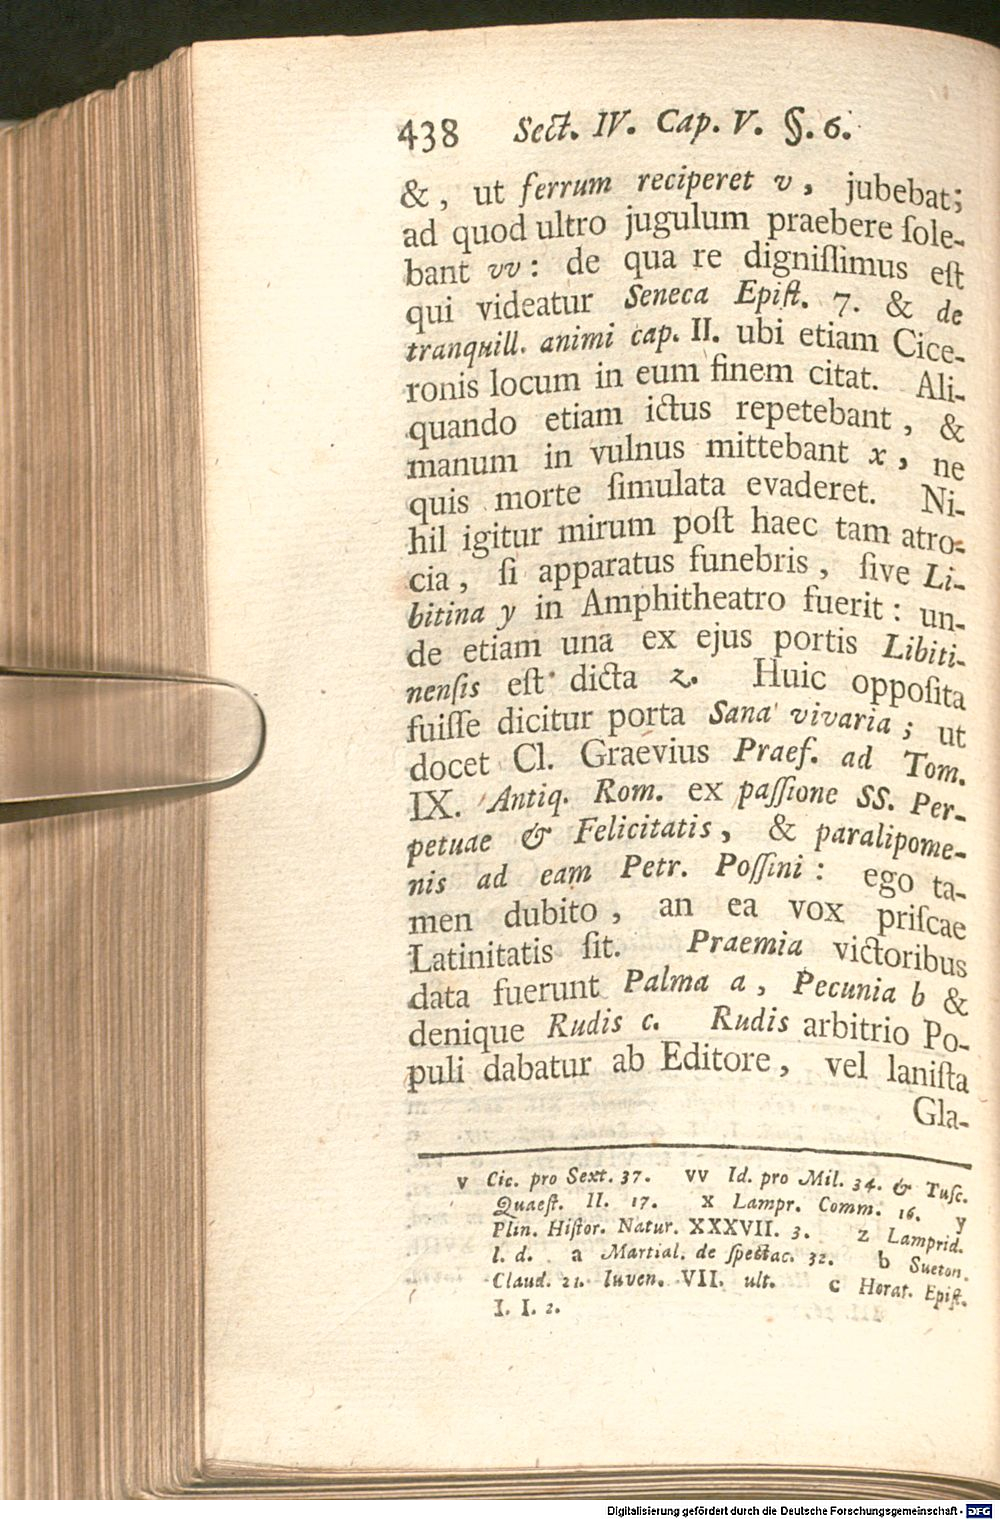 438 Sect. IV. Cap. V. §. 6.
&, ut ferrum reciperet v, jubebat;
ad quod ultro jugulum praebere ſole-
bant vv: de qua re digniſſimus eſt
qui videatur Seneca Epiſt. 7. & de
tranquill. animi cap. II. ubi etiam Cice-
ronis locum in eum finem citat. Ali-
quando etiam ictus repetebant, &
manum in vulnus mittebant x, ne
quis morte ſimulata evaderet. Ni-
hil igitur mirum poſt haec tam atro-
cia, ſi apparatus funebris, ſive Li-
bitina y in Amphitheatro fuerit: un-
de etiam una ex ejus portis Libiti-
nenſis eſt dicta z. Huic oppoſita
fuiſſe dicitur porta Sana vivaria; ut
docet Cl. Graevius Praef. ad Tom.
IX. Antiq. Rom. ex paſſione SS. Per-
petuae & Felicitatis, & paralipome-
nis ad eam Petr. Poſſini: ego ta-
men dubito, an ea vox priſcae
Latinitatis ſit. Praemia victoribus
data fuerunt Palma a, Pecunia b &
denique Rudis c. Rudis arbitrio Po-
puli dabatur ab Editore, vel laniſta
Gla-
v Cic. pro Sext. 37. vv Id. pro Mil. 34. & Tuſc.
Quaeſt. II. 17. x Lampr. Comm. 16. y
Plin. Hiſtor. Natur. XXXVII. 3. z Lamprid.
l. d. a Martial. de ſpectac. 32. b Sueton.
Claud. 21. Iuven. VII. ult. c Horat. Epiſt.
I. I. 2.
Digitalisierung gefördert durch die Deutsche Forschungsgemeinschaft - DFG